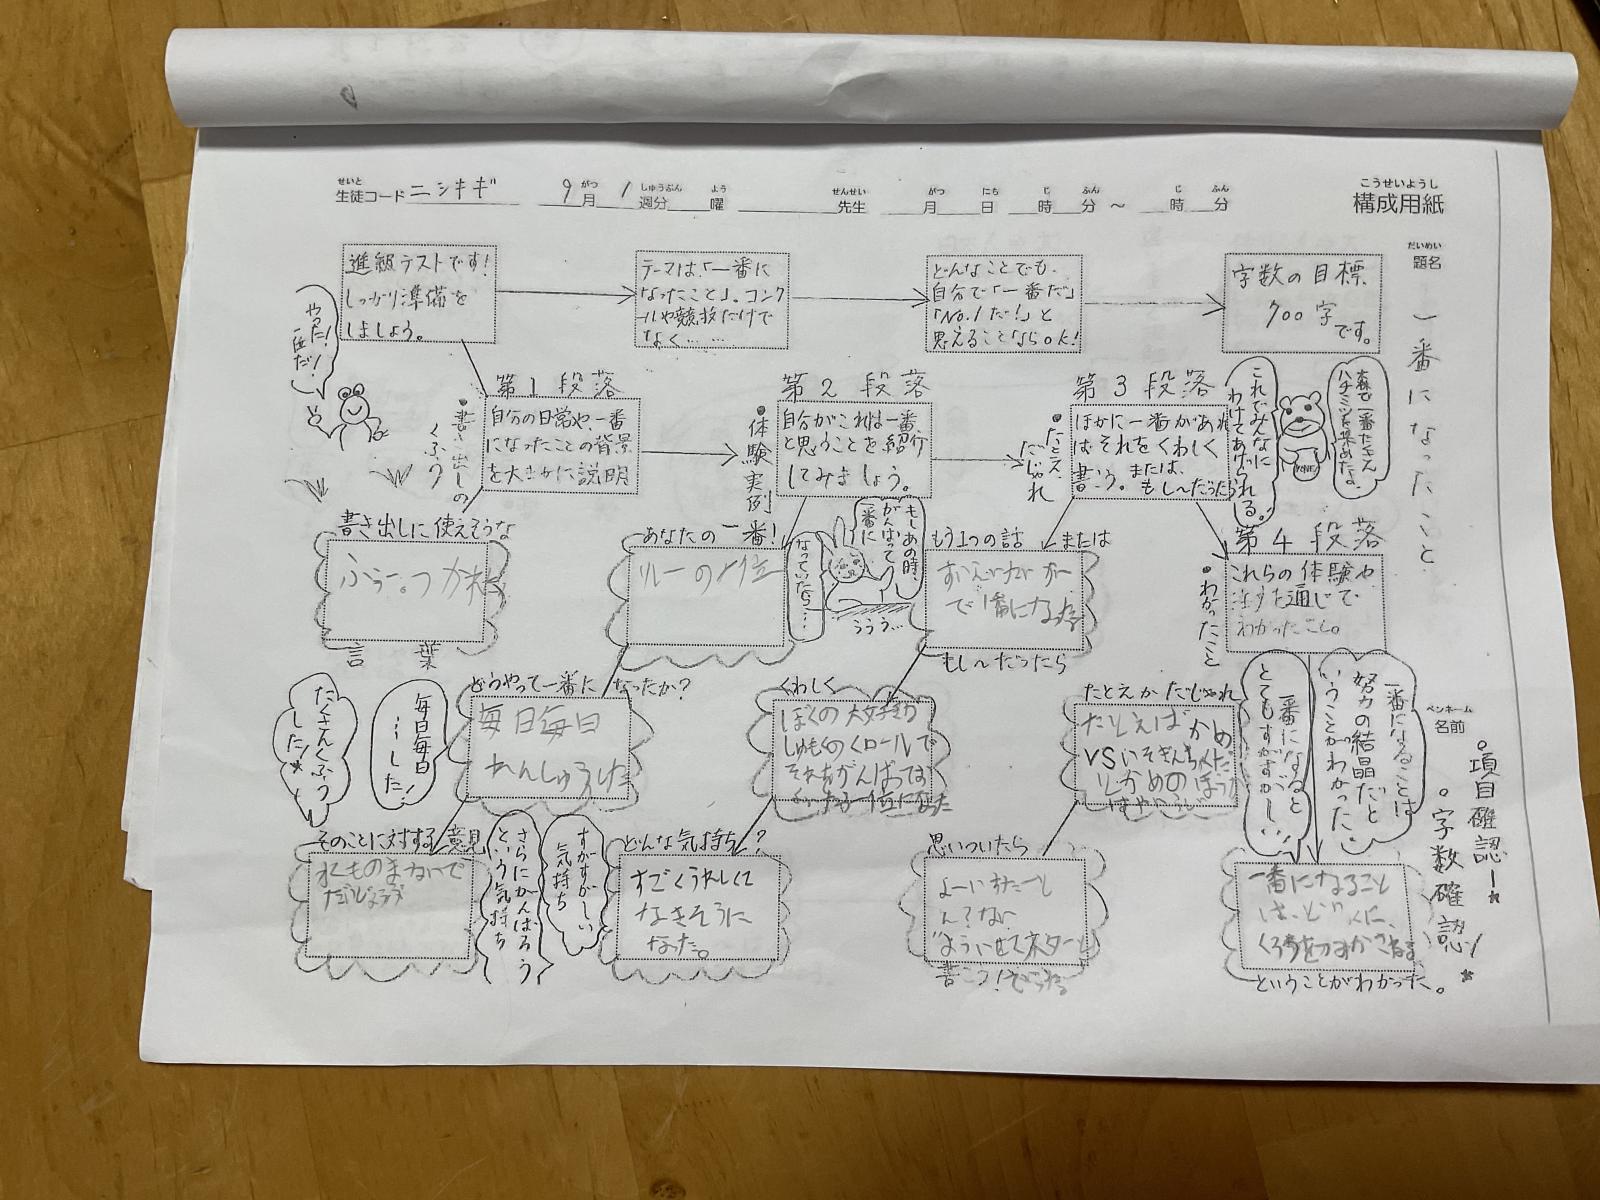 せいと
生徒コード ニシキギ
9月 1週分 曜
がつ しゅうぶん よう
せんせい
先生
がつ にち じ ふん じ ふん
月 日 時 分 ～ 時 分
こうせいようし
構成用紙
だいめい
題名
一番になったこと
進級テストです!
しっかり準備を
しましょう。
テーマは、「一番に
なったこと」。コンク
ールや競技だけで
なく……
どんなことでも、
自分で「一番だ」
「No.1だ!」と
思えることならok!
字数の目標
700字
です。
やった!
一位だ!
第1段落
・書き出しの
くふう
自分の日常や、一番
になったことの背景
を大まかに説明
第2段落
・体験実例
自分がこれは一番、
と思うことを紹介
してみましょう。
第3段落
・たとえ、
だじゃれ
ほかに一番があれ
ばそれをくわしく
書こう。または、
もし〜だったら
これでみんなに
わけてあげられる。
森で一番たくさん
ハチミツを集めたな。
第4段落
・わかったこと
これらの体験や
を通じて
わかったこと。
書き出しに使えそうな
ふぅー。つかれ
言葉
あなたの一番!
リレーの1位
もしあの時、
がんばって
一番に
なっていたら…
ううう…
もう1つの話 または
で1番になる
もし〜だったら
どうやって一番になったか?
毎日毎日
れんしゅうした
毎日毎日
…した!
たくさんくふう
した!
くわしく
ぼくの大好きな
しゅもくのクロールで
それをがんばって
1位になった
たとえかだじゃれ
たとえばかめ
VSいそぎんちゃく
かめのほうが
はやい
一番になると
とてもすがすがしい
一番になることは
努力の結晶だと
いうことがわかった。
ペンネーム
名前
。項目確認!
。字数確認!
そのことに対する意見
水ものまないで
だいじょうぶ
さらにがんばろう
という気持ち
すがすがしい
気持ち
どんな気持ち?
すごくうれしくて
なきそうに
なった。
思いついたら
よーいすたーと
ん?ない
"ようい
書こう!
一番になること
は、
ということがわかった。